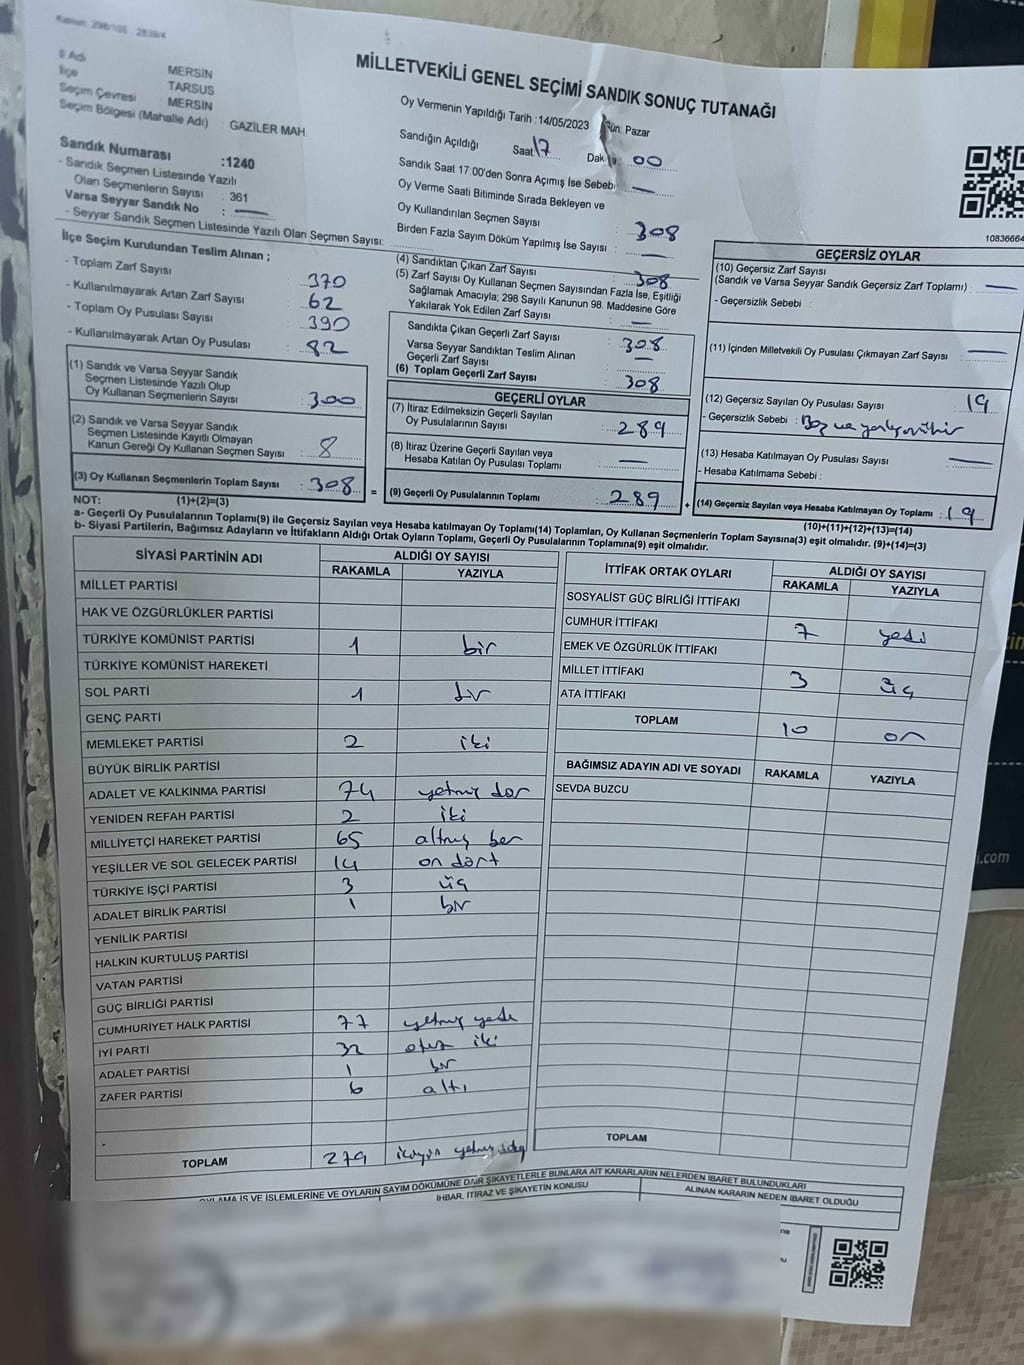 Kanun: 298/105 2839/4
MİLLETVEKİLİ GENEL SEÇİMİ SANDIK SONUÇ TUTANAĞI
İl Adı MERSİN
İlçe TARSUS
Seçim Çevresi : MERSİN
Seçim Bölgesi (Mahalle Adı) : GAZİLER MAH
Sandık Numarası :1240
- Sandık Seçmen Listesinde Yazılı
Olan Seçmenlerin Sayısı : 361
Varsa Seyyar Sandık No : —
- Seyyar Sandık Seçmen Listesinde Yazılı Olan Seçmen Sayısı:
Oy Vermenin Yapıldığı Tarih :14/05/2023 Gün: Pazar
Sandığın Açıldığı Saat 17 Dak 00
Sandık Saat 17:00'den Sonra Açımış İse Sebebi —
Oy Verme Saati Bitiminde Sırada Bekleyen ve
Oy Kullandırılan Seçmen Sayısı : 308
Birden Fazla Sayım Döküm Yapılmış İse Sayısı : —
İlçe Seçim Kurulundan Teslim Alınan ;
- Toplam Zarf Sayısı : 370
- Kullanılmayarak Artan Zarf Sayısı : 62
- Toplam Oy Pusulası Sayısı : 390
- Kullanılmayarak Artan Oy Pusulası : 82
(1) Sandık ve Varsa Seyyar Sandık
Seçmen Listesinde Yazılı Olup
Oy Kullanan Seçmenlerin Sayısı : 300
(2) Sandık ve Varsa Seyyar Sandık
Seçmen Listesinde Kayıtlı Olmayan
Kanun Gereği Oy Kullanan Seçmen Sayısı : 8
(3) Oy Kullanan Seçmenlerin Toplam Sayısı : 308 =
NOT: (1)+(2)=(3)
(4) Sandıktan Çıkan Zarf Sayısı : 308
(5) Zarf Sayısı Oy Kullanan Seçmen Sayısından Fazla İse, Eşitliği
Sağlamak Amacıyla; 298 Sayılı Kanunun 98. Maddesine Göre
Yakılarak Yok Edilen Zarf Sayısı : —
Sandıkta Çıkan Geçerli Zarf Sayısı : 308
Varsa Seyyar Sandıktan Teslim Alınan
Geçerli Zarf Sayısı : —
(6) Toplam Geçerli Zarf Sayısı : 308
GEÇERLİ OYLAR
(7) İtiraz Edilmeksizin Geçerli Sayılan
Oy Pusulalarının Sayısı : 289
(8) İtiraz Üzerine Geçerli Sayılan veya
Hesaba Katılan Oy Pusulası Toplamı : —
(9) Geçerli Oy Pusulalarının Toplamı : 289 +
1083666
GEÇERSİZ OYLAR
(10) Geçersiz Zarf Sayısı
(Sandık ve Varsa Seyyar Sandık Geçersiz Zarf Toplamı) : —
- Geçersizlik Sebebi :
(11) İçinden Milletvekili Oy Pusulası Çıkmayan Zarf Sayısı : —
(12) Geçersiz Sayılan Oy Pusulası Sayısı : 19
- Geçersizlik Sebebi :
(13) Hesaba Katılmayan Oy Pusulası Sayısı : —
- Hesaba Katılmama Sebebi :
(14) Geçersiz Sayılan veya Hesaba Katılmayan Oy Toplamı : 19
(10)+(11)+(12)+(13)=(14)
a- Geçerli Oy Pusulalarının Toplamı(9) ile Geçersiz Sayılan veya Hesaba katılmayan Oy Toplamı(14) Toplamları, Oy Kullanan Seçmenlerin Toplam Sayısına(3) eşit olmalıdır. (9)+(14)=(3)
b- Siyasi Partilerin, Bağımsız Adayların ve İttifakların Aldığı Ortak Oyların Toplamı, Geçerli Oy Pusulalarının Toplamına(9) eşit olmalıdır.
SİYASİ PARTİNİN ADI ALDIĞI OY SAYISI
RAKAMLA YAZIYLA
MİLLET PARTİSİ
HAK VE ÖZGÜRLÜKLER PARTİSİ
TÜRKİYE KOMÜNİST PARTİSİ 1 bir
TÜRKİYE KOMÜNİST HAREKETİ
SOL PARTİ 1 bir
GENÇ PARTİ
MEMLEKET PARTİSİ 2 iki
BÜYÜK BİRLİK PARTİSİ
ADALET VE KALKINMA PARTİSİ 74 yetmiş dör
YENİDEN REFAH PARTİSİ 2 iki
MİLLİYETÇİ HAREKET PARTİSİ 65 altmış beş
YEŞİLLER VE SOL GELECEK PARTİSİ 14 on dört
TÜRKİYE İŞÇİ PARTİSİ 3 üç
ADALET BİRLİK PARTİSİ 1 bir
YENİLİK PARTİSİ
HALKIN KURTULUŞ PARTİSİ
VATAN PARTİSİ
GÜÇ BİRLİĞİ PARTİSİ
CUMHURİYET HALK PARTİSİ 77 yetmiş yedi
İYİ PARTİ 32 otuz iki
ADALET PARTİSİ 1 bir
ZAFER PARTİSİ 6 altı
TOPLAM 279 ikiyüz yetmiş
İTTİFAK ORTAK OYLARI ALDIĞI OY SAYISI
RAKAMLA YAZIYLA
SOSYALİST GÜÇ BİRLİĞİ İTTİFAKI
CUMHUR İTTİFAKI 7 yedi
EMEK VE ÖZGÜRLÜK İTTİFAKI
MİLLET İTTİFAKI 3 üç
ATA İTTİFAKI
TOPLAM 10 on
BAĞIMSIZ ADAYIN ADI VE SOYADI RAKAMLA YAZIYLA
SEVDA BUZCU
TOPLAM
OYLAMA İŞ VE İŞLEMLERİNE VE OYLARIN SAYIM DÖKÜMÜNE DAİR ŞİKAYETLERLE BUNLARA AİT KARARLARIN NELERDEN İBARET BULUNDUKLARI
İHBAR, İTİRAZ VE ŞİKAYETİN KONUSU
ALINAN KARARIN NEDEN İBARET OLDUĞU
i.com